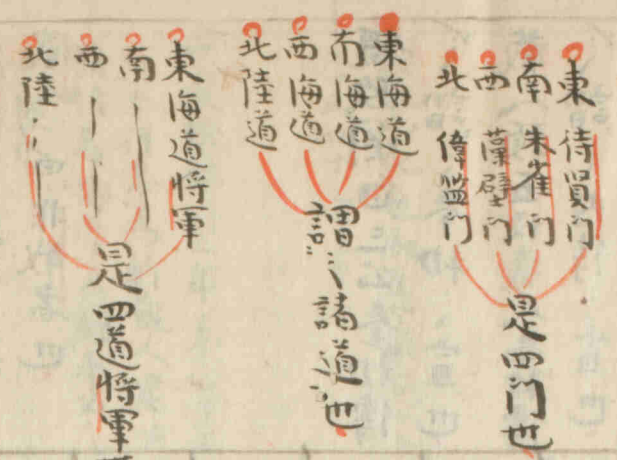 東 待賢门
南 朱雀门
西 藻壁门
北 偉鑒门
是四门也
東海道
南海道
西海道
北陸道
謂之諸道也
東海道将軍
南
西
北陸
是四道将軍